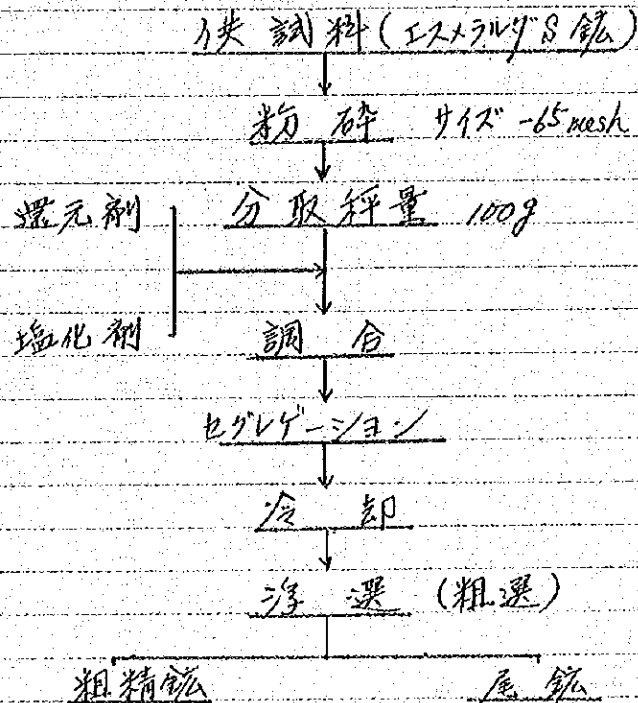 供試料(エスメラルダS鉱)
粉砕 サイズ -65mesh
還元剤
分取秤量 100g
塩化剤
調合
セグレゲーション
冷却
浮選(粗選)
粗精鉱 尾鉱